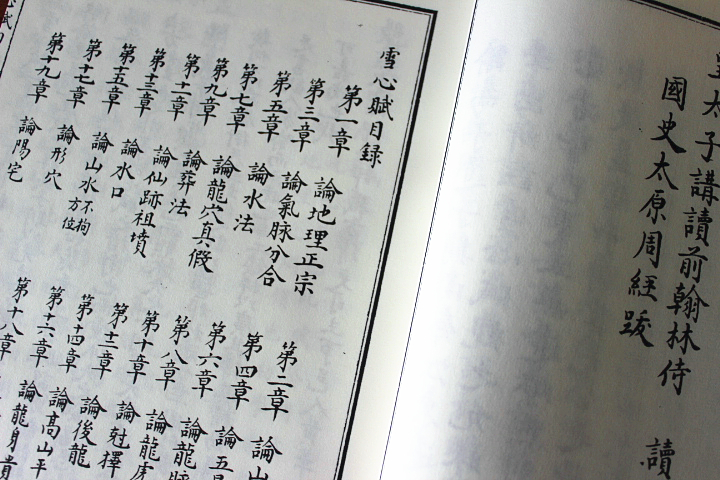 皇太子講讀前翰林侍讀
國史太原周經踆
雪心賦目錄
第一章 論地理正宗
第二章 論山
第三章 論氣脉分合
第四章 論五星
第五章 論水法
第六章 論龍脉
第七章 論龍穴真假
第八章 論龍虎
第九章 論葬法
第十章
第十一章 論仙跡祖墳
第十二章 論後龍
第十三章 論水口
第十四章 論高山平
第十五章 論山水不拘方位
第十六章 論龍身貴
第十七章 論形穴
第十八章
第十九章 論陽宅